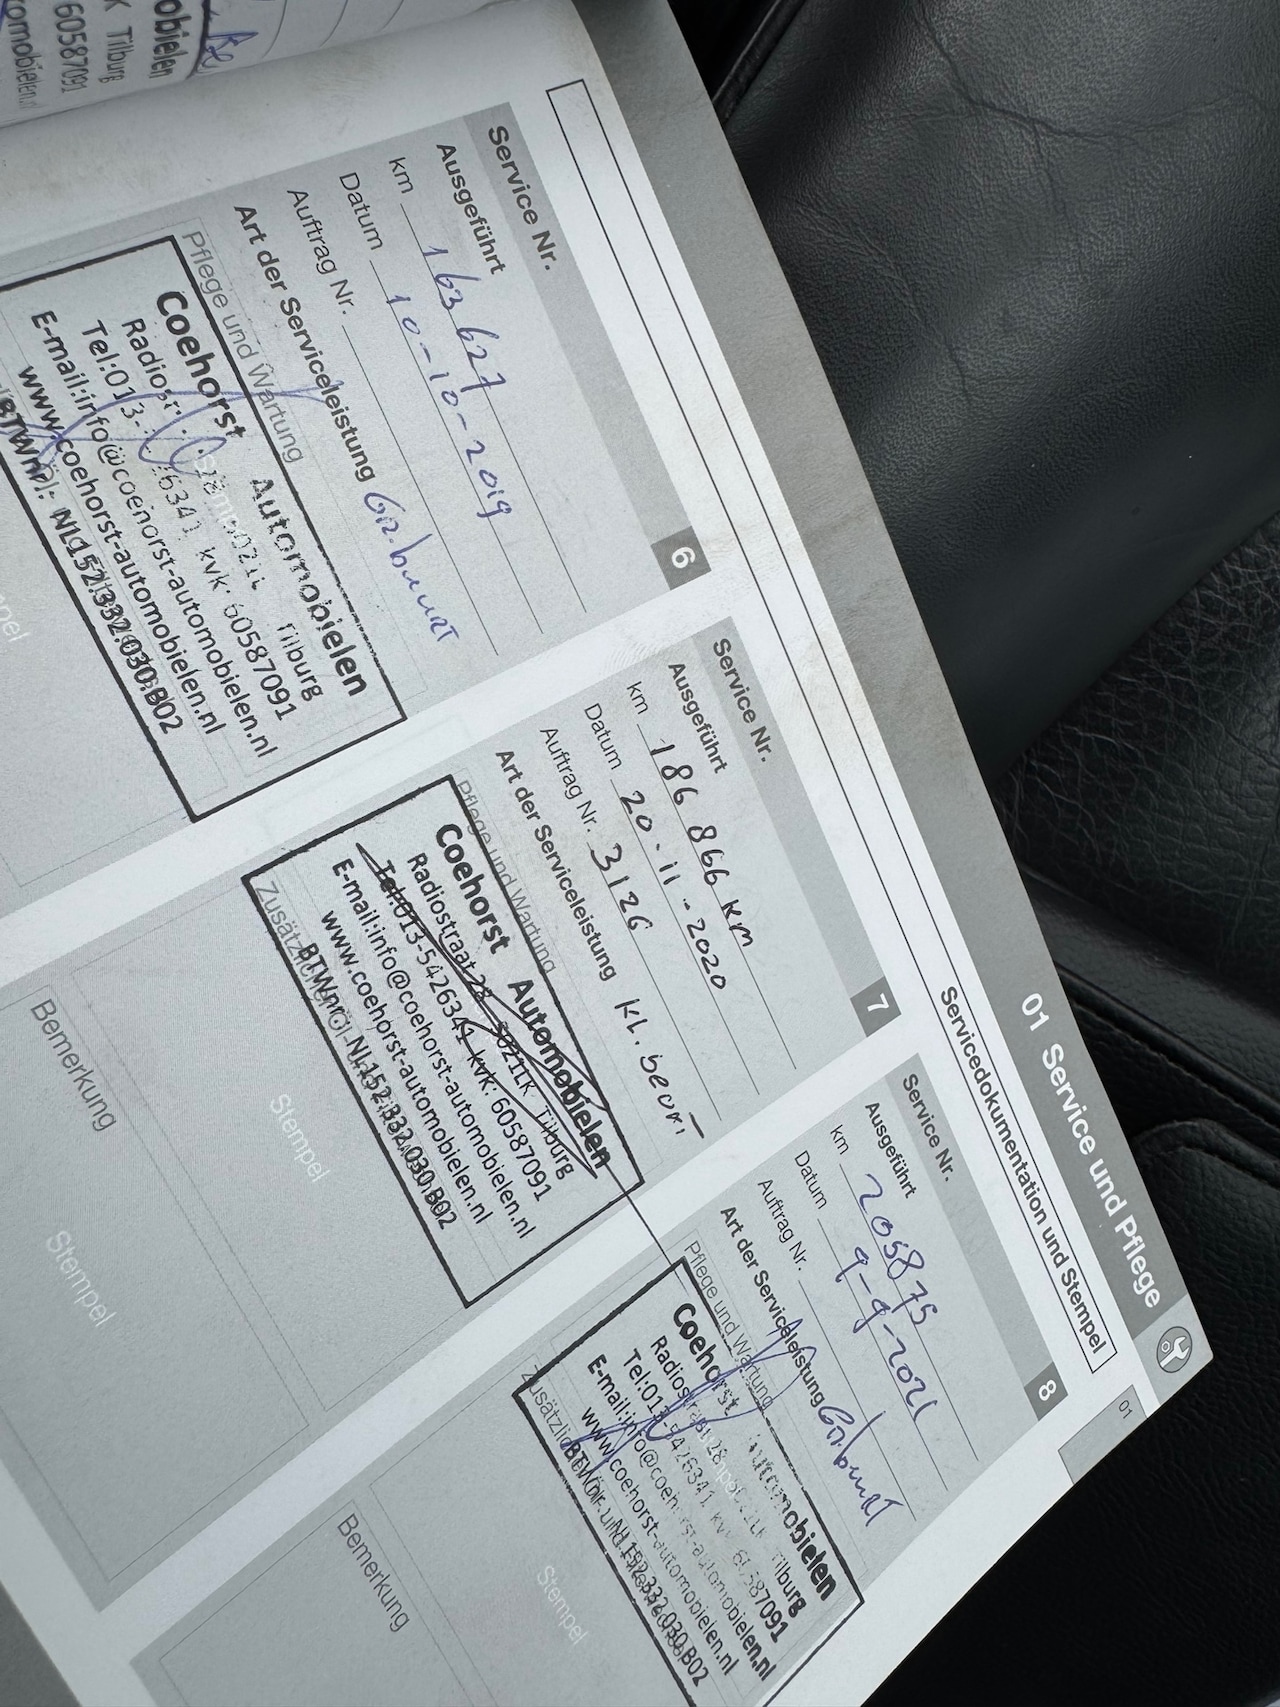 obielen
K Tilburg
60587091
omobielen.nl
01 Service und Pflege
01
Servicedokumentation und Stempel
Service Nr. 6
Ausgeführt
km 163627
Datum 10-10-2019
Auftrag Nr.
Art der Serviceleistung Gr. beurt
Pflege und Wartung
Coehorst Automobielen
Tilburg
Tel:013- 26341 kvk: 60587091
E-mail:info@coehorst-automobielen.nl
www.coehorst-automobielen.nl
BTWnr: NL152.332.030.B02
Service Nr. 7
Ausgeführt
km 186 866 km
Datum 20-11-2020
Auftrag Nr. 3126
Art der Serviceleistung kl. beurt
Pflege und Wartung
Coehorst Automobielen
Radiostraat 28 5021LK Tilburg
Tel:013-5426341 kvk: 60587091
E-mail:info@coehorst-automobielen.nl
www.coehorst-automobielen.nl
BTWnr: NL152.332.030.B02
Stempel
Bemerkung
Stempel
Service Nr. 8
Ausgeführt
km 205875
Datum 9-9-2021
Auftrag Nr.
Art der Serviceleistung Gr. beurt
Pflege und Wartung
Coehorst Automobielen
Tilburg
Tel:013-5426341 kvk 60587091
E-mail:info@coehorst-automobielen.nl
www.coehorst-automobielen.nl
BTWnr: NL152.332.030.B02
Stempel
Bemerkung